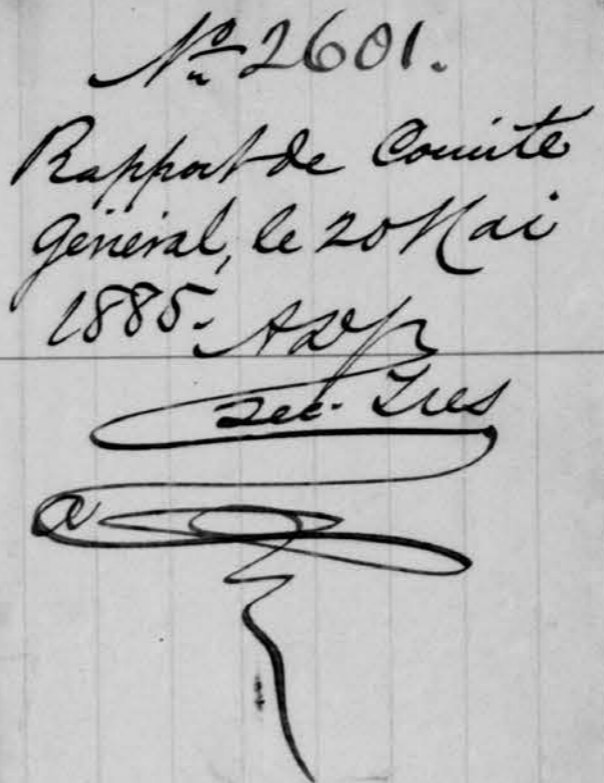 No 2601.
Rapport de Comité
Général, le 20 Mai
1885.
Sec. Tres